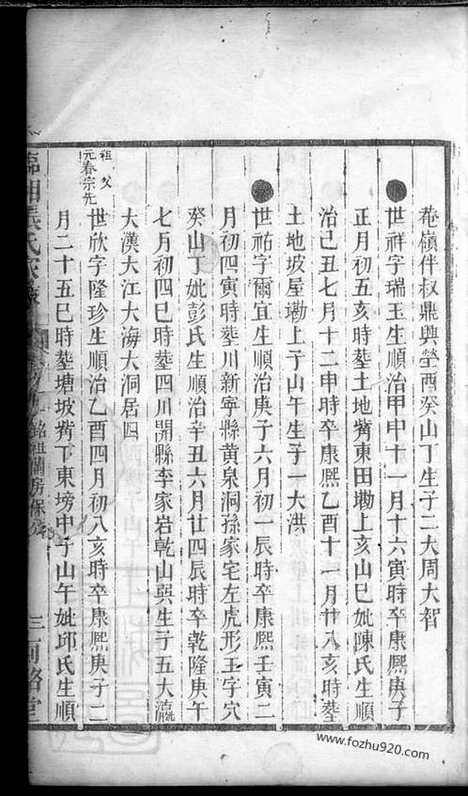 菴嶺伴叔鼎興塋酉癸山丁生子二大周大智
世祥字瑞玉生順治甲申十一月十六寅時卒康熙庚子
正月初五亥時塟土地觜東田墈上亥山巳妣陳氏生順
治己丑七月十二申時卒康熙乙酉十一月廿八亥時塟
土地坡屋墈上子山午生子一大洪
世祐字爾宜生順治庚子六月初一辰時卒康熙壬寅二
月初四寅時塟川新寧縣黄泉洞孫家宅左虎形王字穴
癸山丁妣彭氏生順治辛丑六月廿四辰時卒乾隆庚午
七月初四巳時塟四川開縣李家岩乾山巽生子五大瀛
大漢大江大海大洞居四
祖父
元春宗先
世欣字隆珍生順治乙酉四月初八亥時卒康熙庚子二
月二十五巳時塟塘坡觜丁東塝中子山午妣邱氏生順
臨湘 氏家
銘祖蘭房保
三 堂
www.fozhu920.com